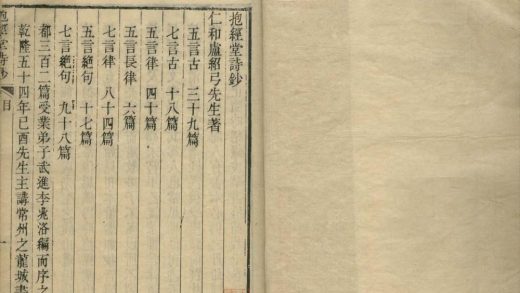 抱經堂詩鈔
仁和盧紹弓先生著
五言古 三十九篇
七言古 十八篇
五言律 四十篇
五言長律 六篇
七言律 八十四篇
五言絕句 十七篇
七言絕句 九十八篇
都三百二篇受業弟子武進李兆洛編而序之
乾隆五十四年己酉先生主講常州之龍城書
抱經堂詩鈔 目 一